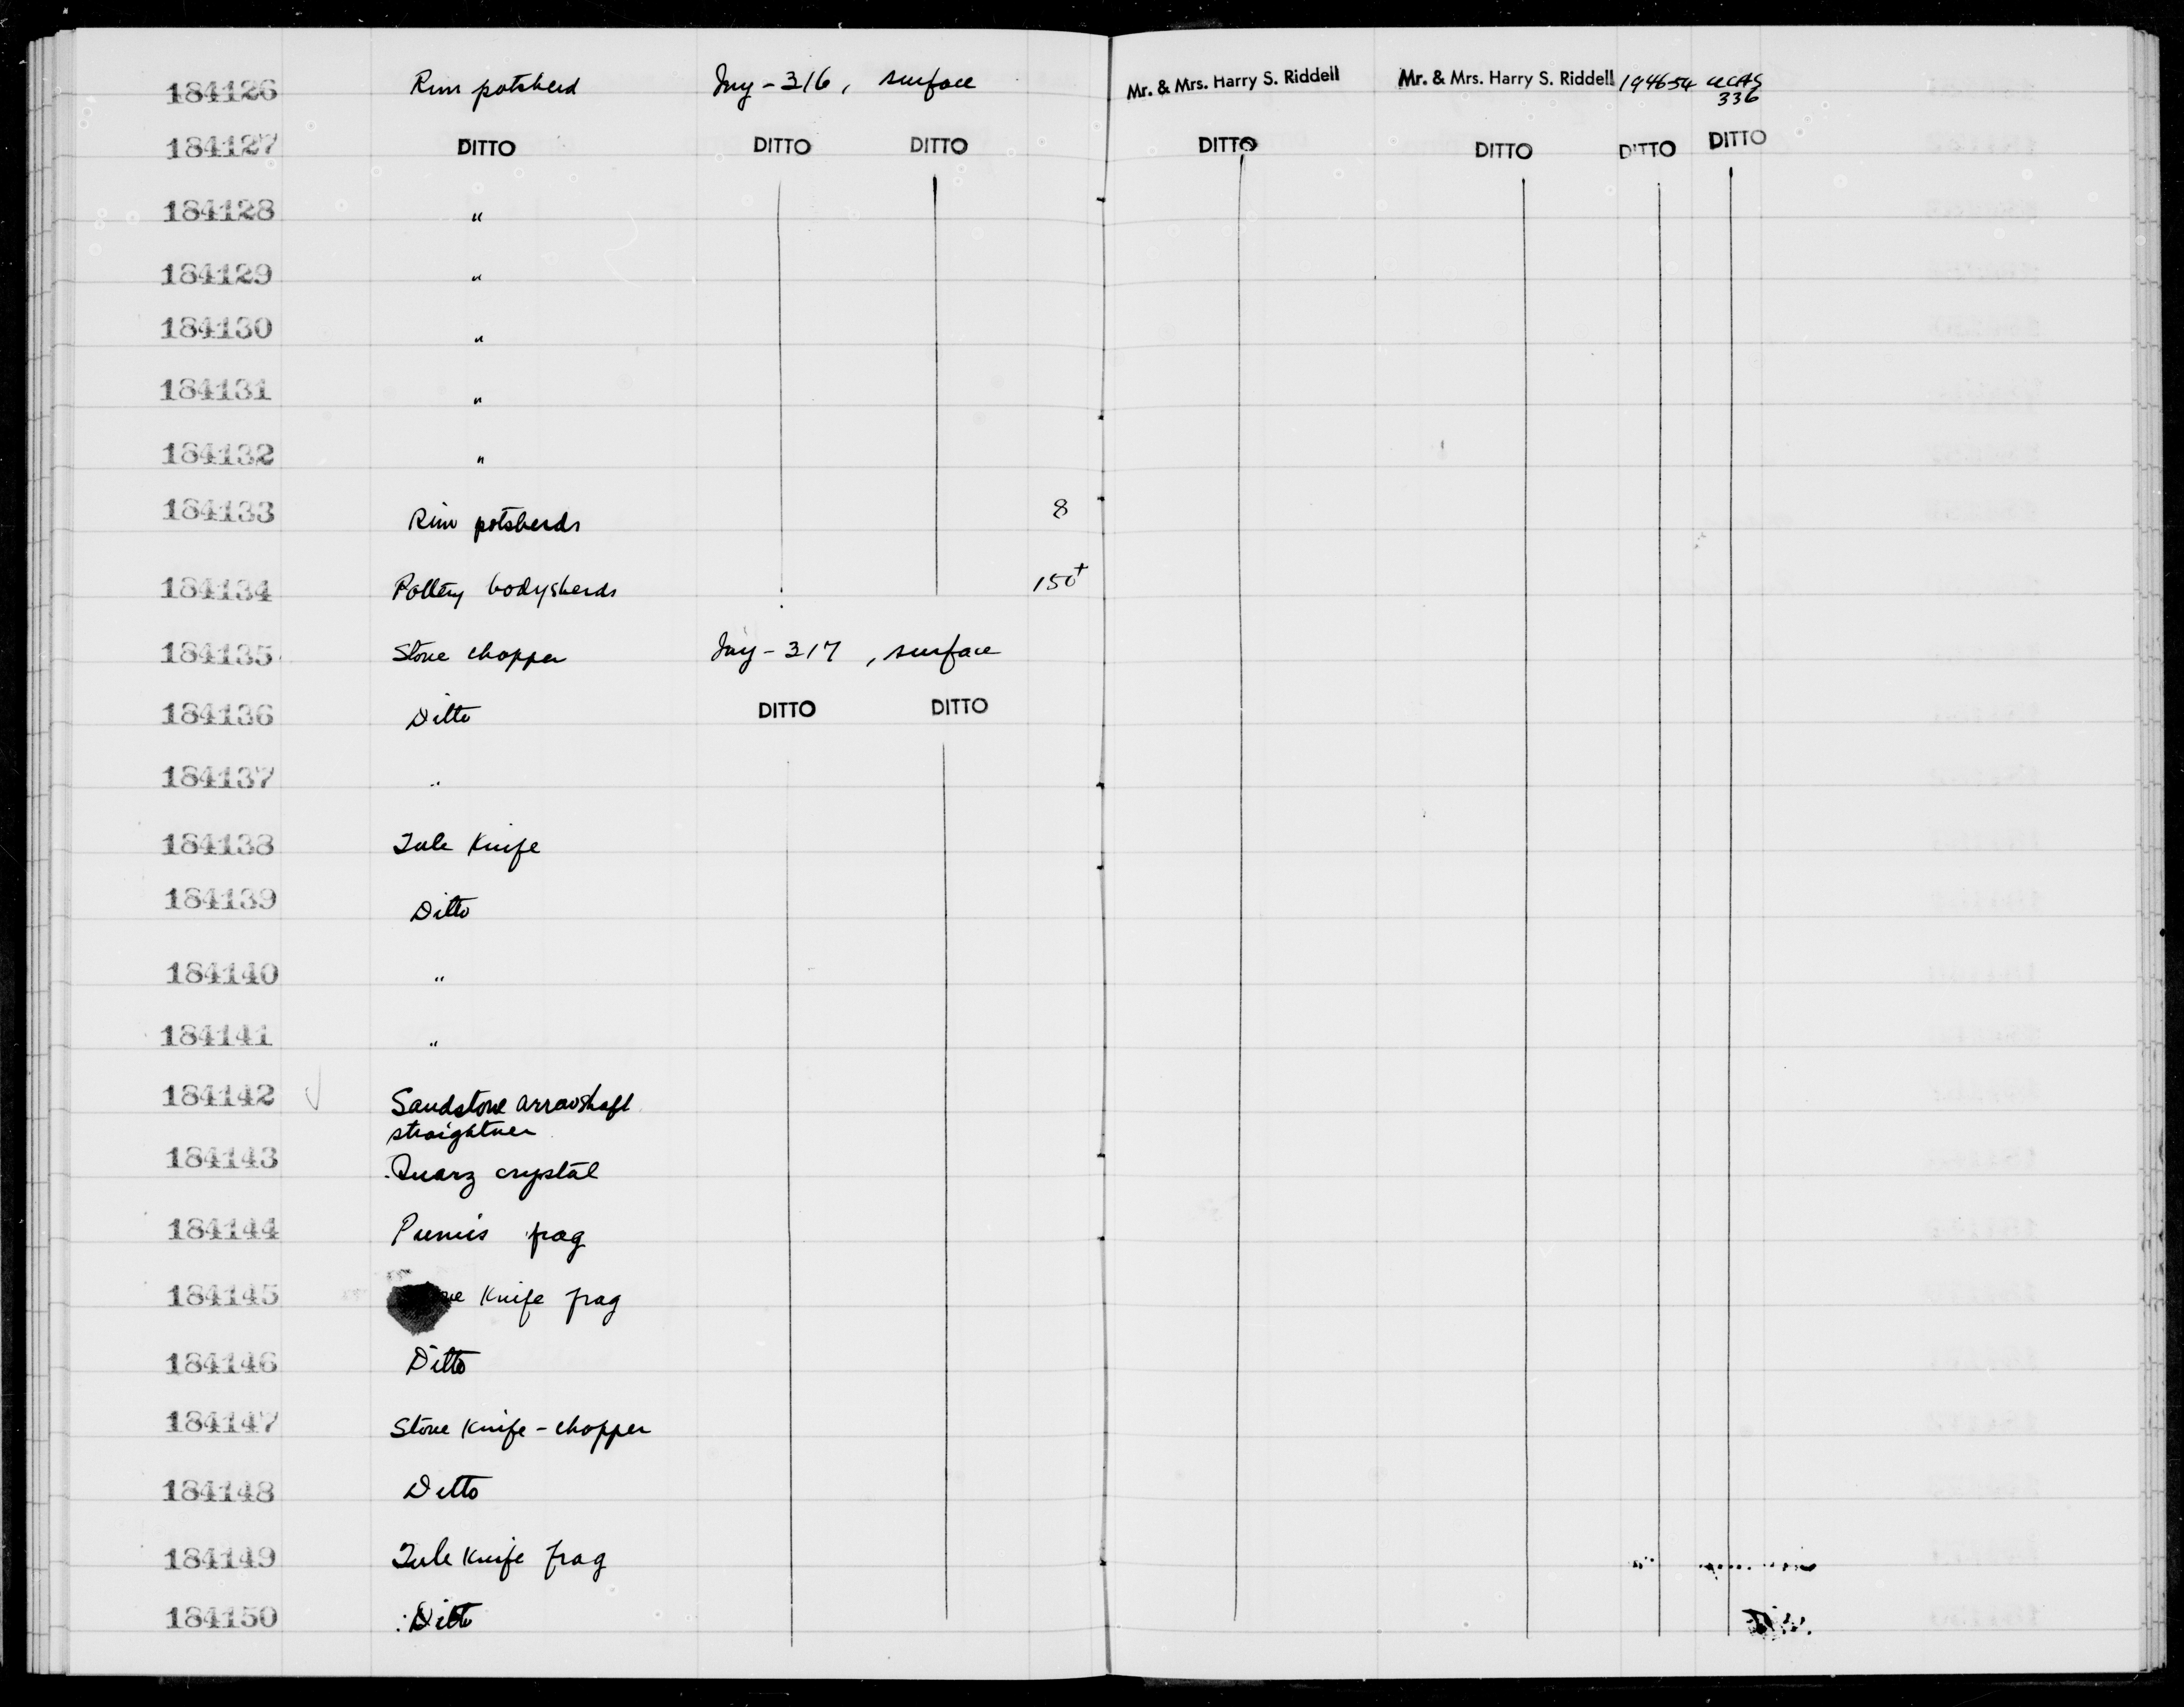 184126 Rim potsherd Iny-316, surface Mr. & Mrs. Harry S. Riddell Mr. & Mrs. Harry S. Riddell 1946-54 UCAS
336
184127 DITTO DITTO DITTO DITTO DITTO DITTO DITTO
184128 "
184129 "
184130 "
184131 "
184132 "
184133 Rim potsherds 8
184134 Pottery bodysherds 150+
184135 Stone chopper Iny-317, surface
184136 Ditto DITTO DITTO
184137 "
184138 Tule Knife
184139 Ditto
184140 "
184141 "
184142 √ Sandstone arrowshaft
straightner
184143 Quarz crystal
184144 Pumis frag
184145 Knife frag
184146 Ditto
184147 Stone Knife-chopper
184148 Ditto
184149 Tule Knife frag
184150 Ditto